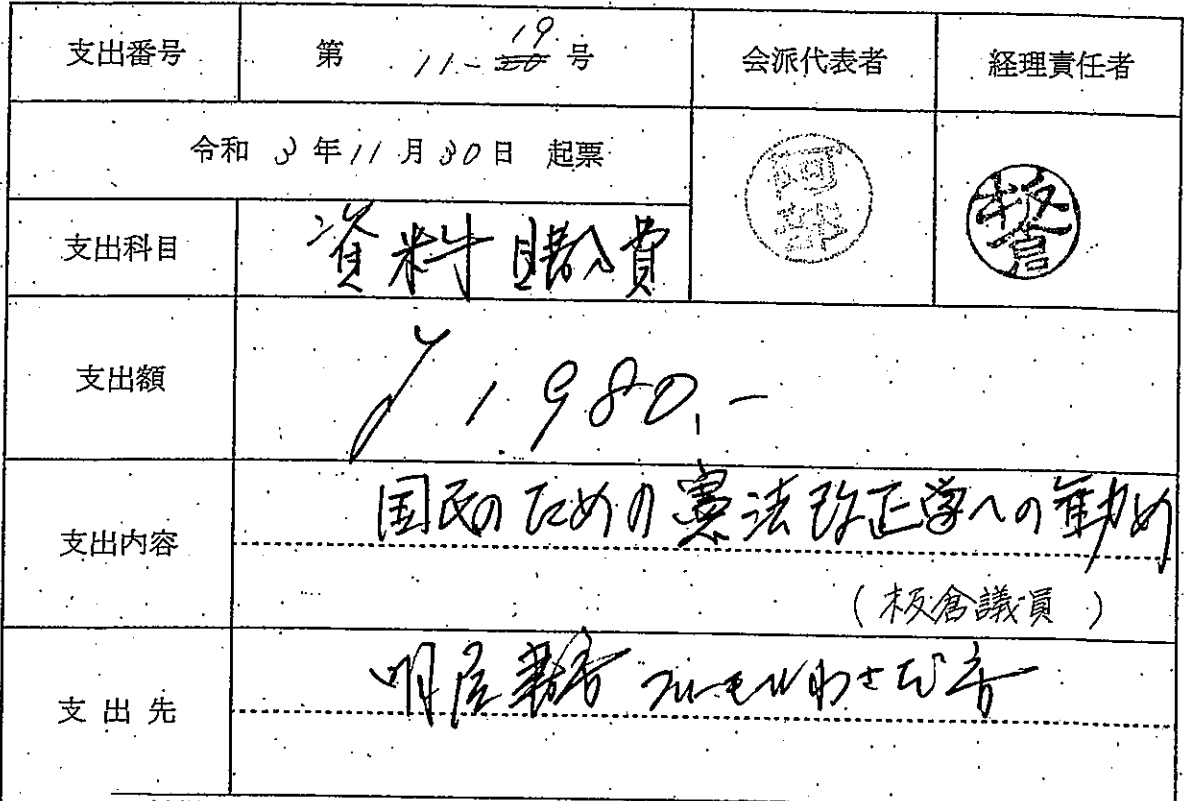 支出番号 第 11-19 号 会派代表者 経理責任者
令和 3 年 11 月 30 日 起票
板倉
支出科目 資料購入費
支出額 ¥1980.-
支出内容 国民のための憲法改正学への勧め
(板倉議員)
支出先 明屋書店 フジモールわさだ店